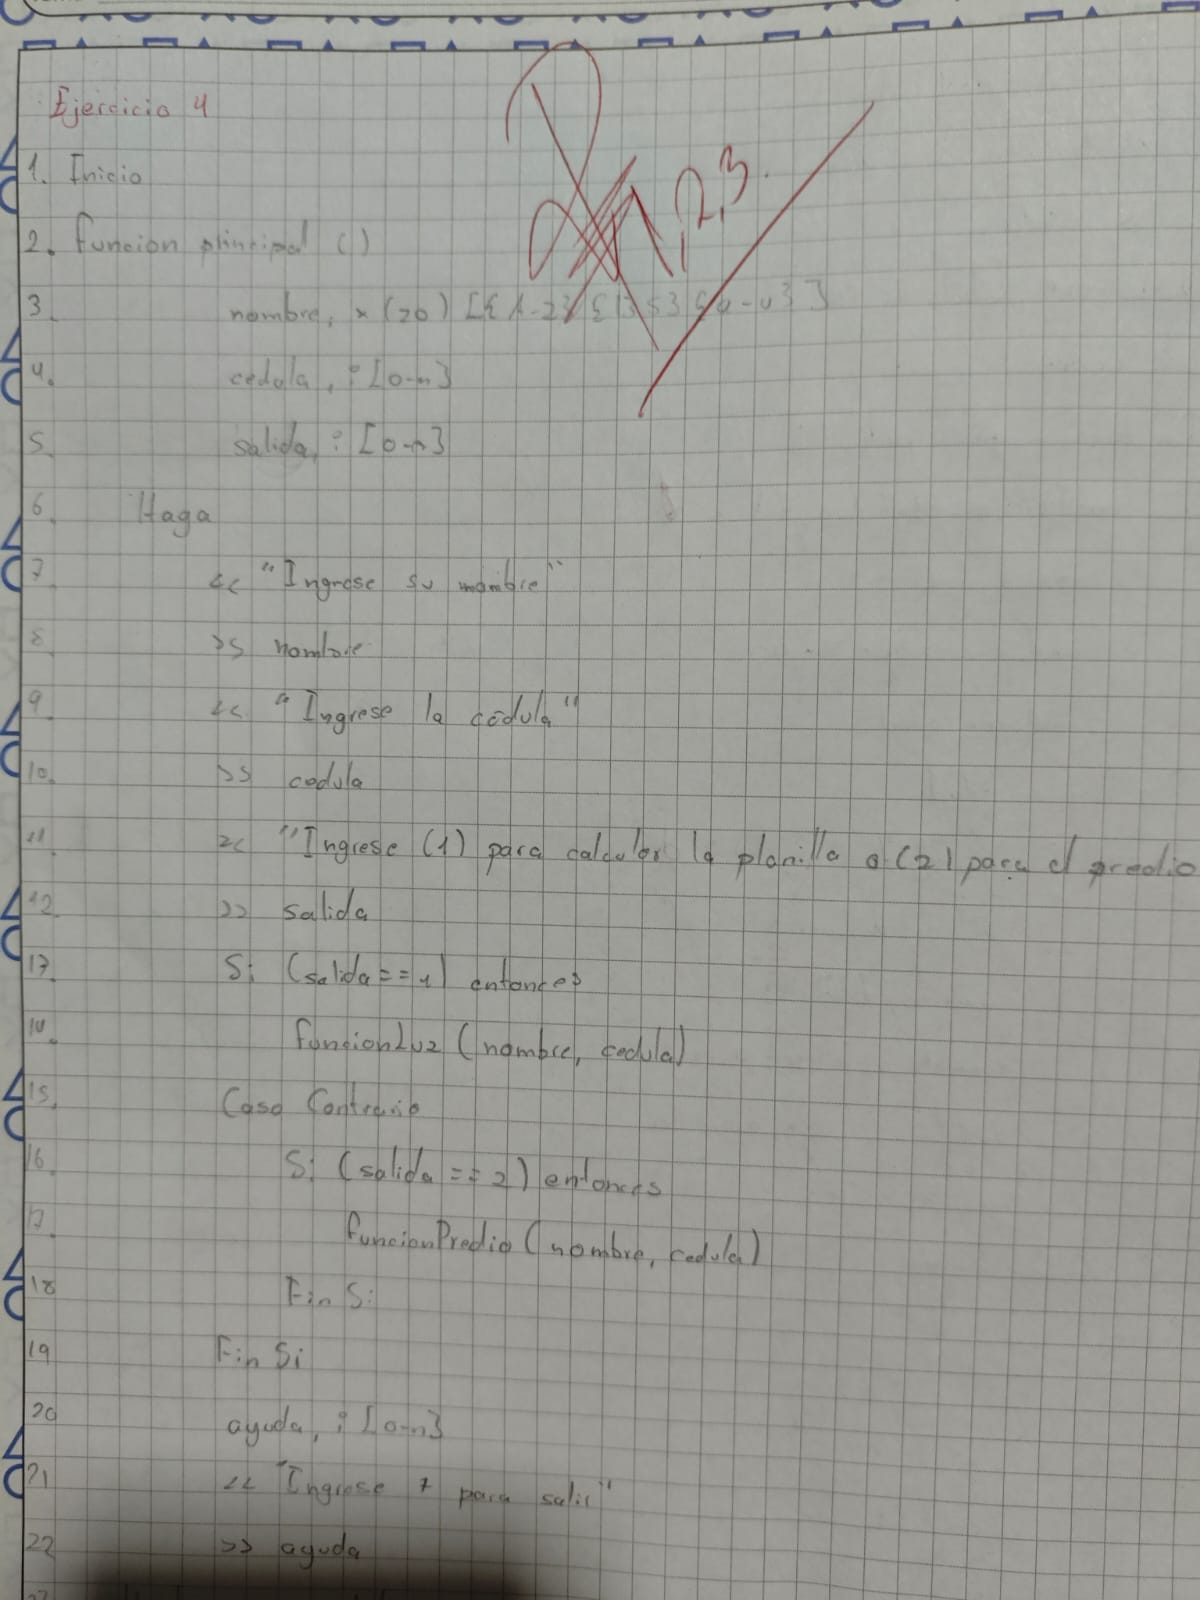 Ejercicio 4
1,2,3.
1. Inicio
2. funcion plincipal ()
3. nombre, x (20) [{A-Z} {a-
4. cedula, i [0-n}
5. salida, i [0-n}
6. Haga
7. << "Ingrese su nombre"
8. >> nombre
9. << "Ingrese la cédula"
10. >> cedula
11. << "Ingrese (1) para calcular la planilla o (2) para el predio
12. >> salida
13. Si (salida == 1) entonces
14. funcionLuz (nombre, cedula)
15. Caso Contrario
16. Si (salida == 2) entonces
17. funcionPredio (nombre, cedula)
18 Fin Si
19 Fin Si
20 ayuda, i [0-n}
21 << "Ingrese 7 para salir"
22 >> ayuda